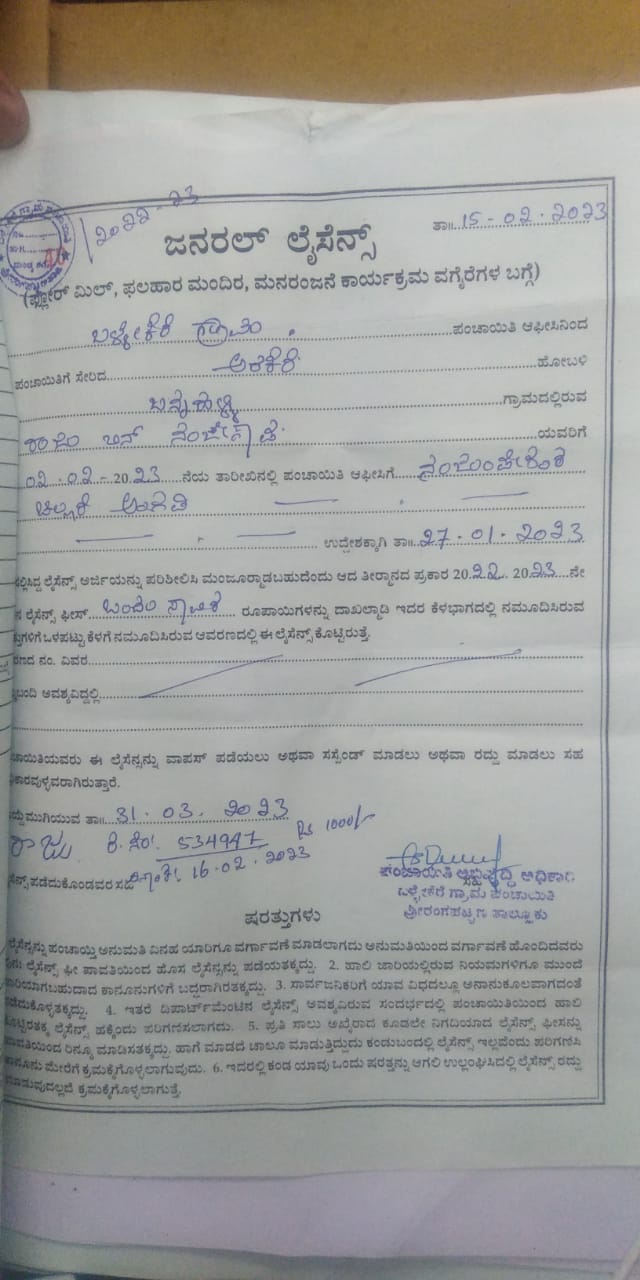 /2022-23
ತಾ॥ 15-02-2023
ಜನರಲ್ ಲೈಸೆನ್ಸ್
(ಫ್ಲೋರ್ ಮಿಲ್, ಫಲಹಾರ ಮಂದಿರ, ಮನರಂಜನೆ ಕಾರ್ಯಕ್ರಮ ವಗೈರೆಗಳ ಬಗ್ಗೆ)
ಬಳ್ಳೇಕೆರೆ ಗ್ರಾಪಂ ಪಂಚಾಯಿತಿ ಆಫೀಸಿನಿಂದ
ಪಂಚಾಯಿತಿಗೆ ಸೇರಿದ ಅರಕೆರೆ ಹೋಬಳಿ
ಗ್ರಾಮದಲ್ಲಿರುವ
ಯವರಿಗೆ
02-02-2023 ನೆಯ ತಾರೀಖಿನಲ್ಲಿ ಪಂಚಾಯಿತಿ ಆಫೀಸಿಗೆ
ಉದ್ದೇಶಕ್ಕಾಗಿ ತಾ॥ 27.01.2023
ಲೈಸೆನ್ಸ್ ಅರ್ಜಿಯನ್ನು ಪರಿಶೀಲಿಸಿ ಮಂಜೂರ್ಮಾಡಬಹುದೆಂದು ಆದ ತೀರ್ಮಾನದ ಪ್ರಕಾರ 2022. 2023 ನೇ
ಲೈಸೆನ್ಸ್ ಫೀಸ್ ಒಂದು ಸಾವಿರ ರೂಪಾಯಿಗಳನ್ನು ದಾಖಲ್ಮಾಡಿ ಇದರ ಕೆಳಭಾಗದಲ್ಲಿ ನಮೂದಿಸಿರುವ
ಒಳಪಟ್ಟು ಕೆಳಗೆ ನಮೂದಿಸಿರುವ ಆವರಣದಲ್ಲಿ ಈ ಲೈಸೆನ್ಸ್ ಕೊಟ್ಟಿರುತ್ತೆ.
ನಂ. ವಿವರ
ಅವಶ್ಯವಿದ್ದಲ್ಲಿ
ಈ ಲೈಸೆನ್ಸನ್ನು ವಾಪಸ್ ಪಡೆಯಲು ಅಥವಾ ಸಸ್ಪೆಂಡ್ ಮಾಡಲು ಅಥವಾ ರದ್ದು ಮಾಡಲು ಸಹ
ತಾ॥ 31.03.2023
ರಾಜು ರ.ಸಂ. 534947 Rs 1000/-
16.02.2023
ಪಡೆದುಕೊಂಡವರ ಸಹಿ
ಪಂಚಾಯಿತಿ ಅಭಿವೃದ್ಧಿ ಅಧಿಕಾರಿ
ಬಳ್ಳೇಕೆರೆ ಗ್ರಾಮ ಪಂಚಾಯಿತಿ
ಶ್ರೀರಂಗಪಟ್ಟಣ ತಾಲ್ಲೂಕು
ಷರತ್ತುಗಳು
ಲೈಸೆನ್ಸನ್ನು ಪಂಚಾಯ್ತಿ ಅನುಮತಿ ವಿನಹ ಯಾರಿಗೂ ವರ್ಗಾವಣೆ ಮಾಡಲಾಗದು ಅನುಮತಿಯಿಂದ ವರ್ಗಾವಣೆ ಹೊಂದಿದವರು
ಲೈಸೆನ್ಸ್ ಫೀ ಪಾವತಿಯಿಂದ ಹೊಸ ಲೈಸೆನ್ಸನ್ನು ಪಡೆಯತಕ್ಕದ್ದು. 2. ಹಾಲಿ ಜಾರಿಯಲ್ಲಿರುವ ನಿಯಮಗಳಿಗೂ ಮುಂದೆ
ಜಾರಿಯಾಗಬಹುದಾದ ಕಾನೂನುಗಳಿಗೆ ಬದ್ಧರಾಗಿರತಕ್ಕದ್ದು. 3. ಸಾರ್ವಜನಿಕರಿಗೆ ಯಾವ ವಿಧದಲ್ಲೂ ಅನಾನುಕೂಲವಾಗದಂತೆ
4. ಇತರೆ ಡಿಪಾರ್ಟ್‌ಮೆಂಟಿನ ಲೈಸೆನ್ಸ್ ಅವಶ್ಯವಿರುವ ಸಂದರ್ಭದಲ್ಲಿ ಪಂಚಾಯಿತಿಯಿಂದ ಹಾಲಿ
ಲೈಸೆನ್ಸ್ ಹಕ್ಕೆಂದು ಪರಿಗಣಿಸಲಾಗದು. 5. ಪ್ರತಿ ಸಾಲು ಅಖೈರಾದ ಕೂಡಲೇ ನಿಗದಿಯಾದ ಲೈಸೆನ್ಸ್ ಫೀಸನ್ನು
ಪಾವತಿಯಿಂದ ರಿನ್ಯೂ ಮಾಡಿಸತಕ್ಕದ್ದು. ಹಾಗೆ ಮಾಡದೆ ಚಾಲೂ ಮಾಡುತ್ತಿದ್ದುದು ಕಂಡುಬಂದಲ್ಲಿ ಲೈಸೆನ್ಸ್ ಇಲ್ಲವೆಂದು ಪರಿಗಣಿಸಿ
ಕಾನೂನು ಮೇರೆಗೆ ಕ್ರಮಕೈಗೊಳ್ಳಲಾಗುವುದು. 6. ಇದರಲ್ಲಿ ಕಂಡ ಯಾವು ಒಂದು ಷರತ್ತನ್ನು ಆಗಲಿ ಉಲ್ಲಂಘಿಸಿದಲ್ಲಿ ಲೈಸೆನ್ಸ್ ರದ್ದು
ಮಾಡುವುದಲ್ಲದೆ ಕ್ರಮಕೈಗೊಳ್ಳಲಾಗುತ್ತೆ.